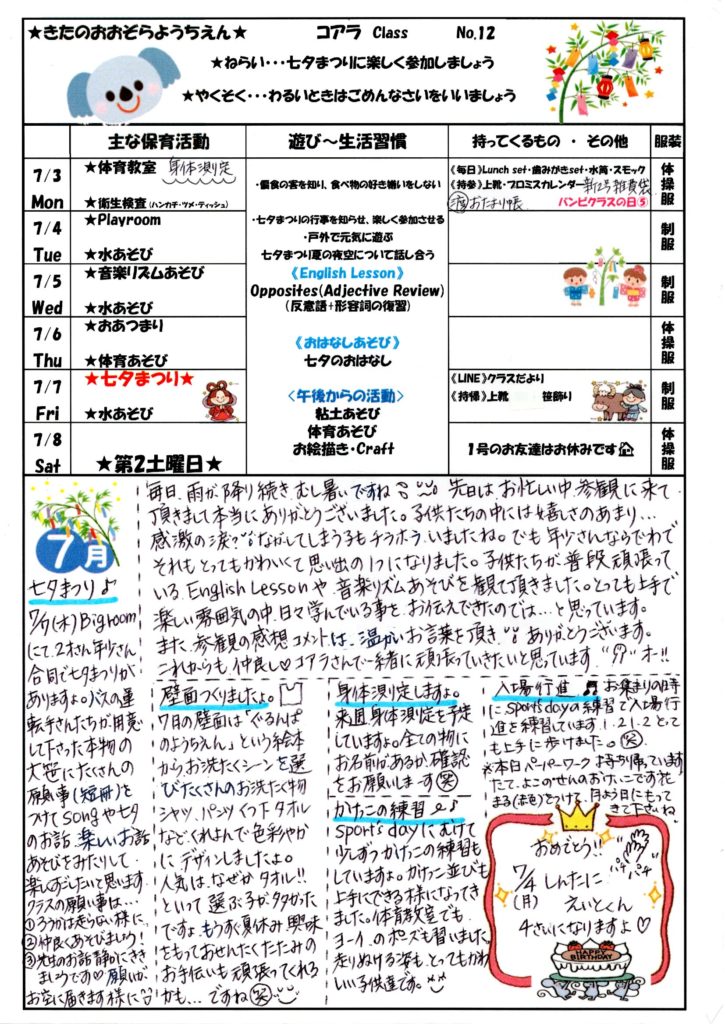 ★きたのおおぞらようちえん★ コアラ Class No.12
★ねらい・・・七夕まつりに楽しく参加しましょう
★やくそく・・・わるいときはごめんなさいをいいましょう
主な保育活動 遊び～生活習慣 持ってくるもの ・ その他 服装
7/3 Mon
★体育教室 身体測定
★衛生検査(ハンカチ・ツメ・ティッシュ)
・偏食の害を知り、食べ物の好き嫌いをしない
《毎日》Lunch set・歯みがきset・水筒・スモック
《持参》上靴・プロミスカレンダー 新2号雑貨袋
おたより帳 バンビクラスの日⑤
体操服
7/4 Tue
★Playroom
★水あそび
・七夕まつりの行事を知らせ、楽しく参加させる
・戸外で元気に遊ぶ
七夕まつり夏の夜空について話し合う
制服
7/5 Wed
★音楽リズムあそび
★水あそび
《English Lesson》
Opposites(Adjective Review)
(反意語+形容詞の復習)
制服
7/6 Thu
★おあつまり
★体育あそび
《おはなしあそび》
七夕のおはなし
体操服
7/7 Fri
★七夕まつり★
★水あそび
<午後からの活動>
粘土あそび
体育あそび
お絵描き・Craft
《LINE》クラスだより
《持帰》上靴 笹飾り
制服
7/8 Sat
★第2土曜日★
1号のお友達はお休みです
体操服
毎日、雨が降り続き、むし暑いですね 先日はお忙しい中、参観に来て
頂きまして本当にありがとうございました。子供たちの中には嬉しさのあまり…
感激の涙?ながしてしまう子もチラホラいましたね。でも年少さんならでわで
それもとってもかわいくて思い出の1つになりました。子供たちが普段、頑張って
いるEnglish Lessonや、音楽リズムあそびを観て頂きました。とっても上手で
楽しい雰囲気の中、日々学んでいる事をお伝えできたのでは…と思っています。
また、参観の感想コメントは、温かいお言葉を頂き ありがとうございます。
これからも仲良し♡コアラさんで一緒に頑張っていきたいと思っています オー!!
7月
七夕まつり♪
7/7(木)Bigroom
にて、2才さん年少さん
合同で七夕まつりが
ありますよ。バスの運
転手さんたちが用意
して下さった本物の
大笹にたくさんの
願い事(短冊)を
つけてsongや七夕
のお話、楽しいお話
あそびをみたりして
楽しくすごしたいと思います
クラスの願い事は…
①ろうかは走らない様に
②仲良くあそびましょう!
③先生のお話静かにきき
ましょうです♡願いが
お空に届きます様に
壁面つくりましたよ。
7月の壁面は「ぐるんぱ
のようちえん」という絵本
から、お洗たくシーンを選
びたくさんのお洗たく物
シャツ、パンツ、くつ下、タオル
など、くれよんで色彩やか
にデザインしましたよ。
人気は、なぜかタオル!!
といって選ぶ子が多かった
ですよ。もうすぐ夏休み、興味
をもっておせんたくたたみの
お手伝いも頑張ってくれる
かも…ですね(笑)
身体測定しますよ。
来週、身体測定を予定
していますよ。全ての物に
お名前があるか確認
をお願いします(笑)
かけこの練習♪
sports dayにむけて
少しずつかけこの練習も
していますよ。かけこ並びも
上手にできる様になってき
ました。体育教室でも
ヨーイ、のポーズも習いました。
走りぬける姿も、とってもかわ
いい子供達です。
入場行進 お集まりの時
にsports dayの練習で入場行
進を練習しています。1.2.1.2ととっ
ても上手に歩けました。(笑)
※本日ペーパーワークお持ち帰っています
たて、よこのせんのおけいこです
まる(お色)をつけて、月よう日にもって
きて下さいね
おめでとう!!
パチパチ
7/4(月) しんたに えいとくん
4さいになりますよ♡
HAPPY BIRTHDAY